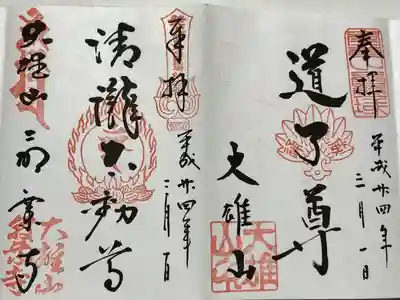 奉拝
道了尊
平成廿四年
三月一日
大雄山
奉拝
清瀧不動尊
平成廿四年
三月一日
大雄山